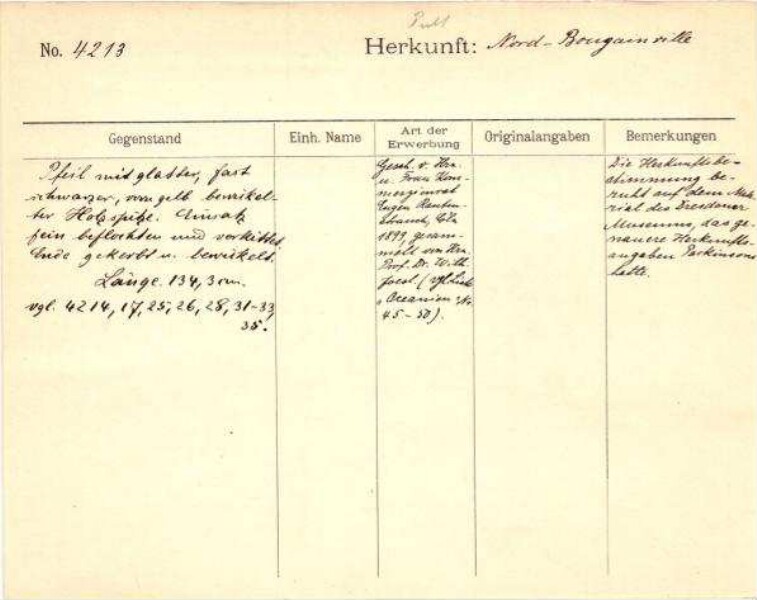 No. 4213
Herkunft: Nord-Bougainville
Gegenstand
Einh. Name
Art der Erwerbung
Originalangaben
Bemerkungen
Pfeil mit glatter, fast
schwarzer, vorn gelb bewickel-
ter Holzspitze. Einsatz
fein beflochten und verkittet,
Ende gekerbt u. bewickelt.
Länge. 134,3 cm.
vgl. 4214, 17, 25, 26, 28, 31-33,
35.
Gesch. v. Hrn.
u. Frau Kom-
merzienrat
Eugen Rauten-
strauch, Cöln
1899, gesam-
melt von Hrn.
Prof. Dr. Wilh.
Joest. (vgl. Liste
Oceanien No
45-50).
Die Herkunftsbe-
stimmung be-
ruht auf dem Mate-
rial des Dresdener
Museums, das ge-
nauere Herkunfts-
angaben Parkinsons
hatte.